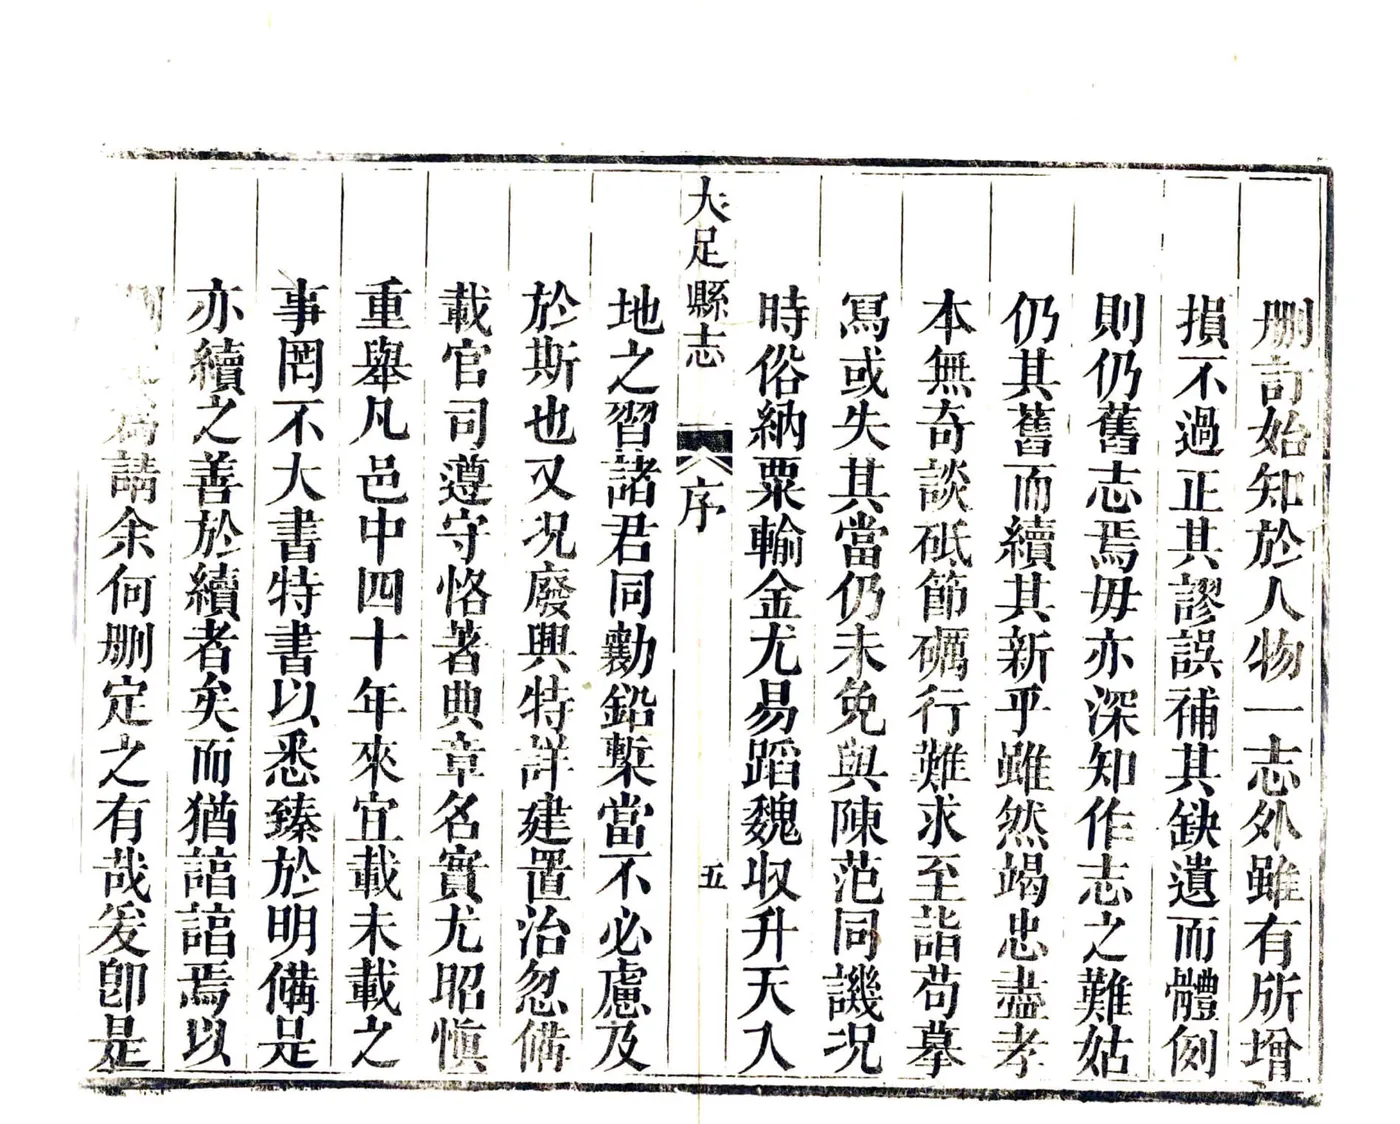 刪訂始知於人物一志外雖有所增
損不過正其謬誤補其缺遺而體例
則仍舊志焉毋亦深知作志之難姑
仍其舊而續其新乎雖然竭忠盡孝
本無奇談砥節礪行難求至詣苟摹
寫或失其當仍未免與陳范同譏況
時俗納粟輸金尤易蹈魏収升天入
大足縣志
序
五
地之習諸君同勷鉛槧當不必慮及
於斯也又況廢興特詳建置治忽備
載官司遵守恪著典章名實尤昭慎
重舉凡邑中四十年來宜載未載之
事罔不大書特書以悉臻於明備是
亦續之善於續者矣而猶諄諄焉以
請余何刪定之有哉爰卽是